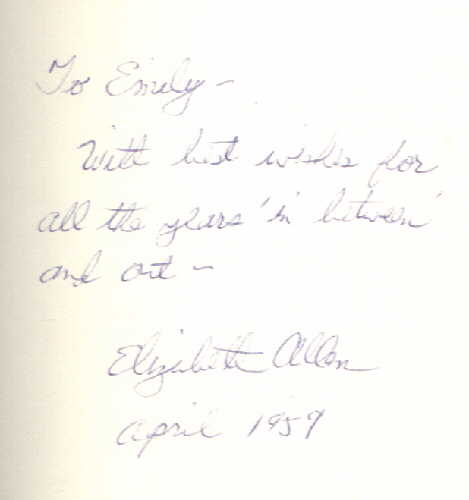 To Emily -
With best wishes for
all the years 'in between'
and out -
Elizabeth Allen
April 1959